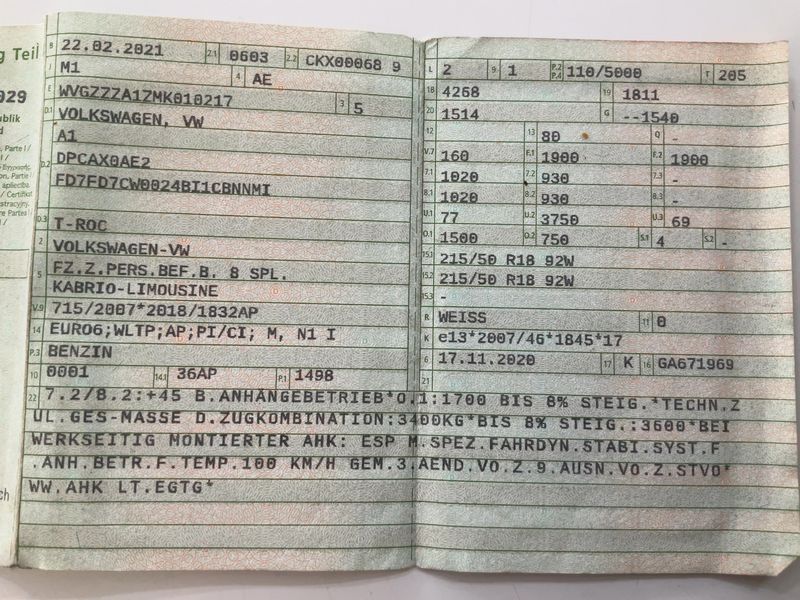 g Teil
029
publik
d
, Parte I /
B 22.02.2021 2.1 0603 2.2 CKX00068 9
J M1 4 AE
E WVGZZZA1ZMK010217 3 5
D.1 VOLKSWAGEN, VW
A1
D.2 DPCAX0AE2
FD7FD7CW0024BI1CBNNMI
D.3 T-ROC
2 VOLKSWAGEN-VW
5 FZ.Z.PERS.BEF.B. 8 SPL.
KABRIO-LIMOUSINE
V.9 715/2007*2018/1832AP
14 EURO6;WLTP;AP;PI/CI; M, N1 I
P.3 BENZIN
10 0001 14.1 36AP P.1 1498
L 2 9 1 P.2 P.4 110/5000 T 205
18 4268 19 1811
20 1514 G --1540
12 13 80 Q -
V.7 160 F.1 1900 F.2 1900
7.1 1020 7.2 930 7.3 -
8.1 1020 8.2 930 8.3 -
U.1 77 U.2 3750 U.3 69
O.1 1500 O.2 750 S.1 4 S.2 -
15.1 215/50 R18 92W
15.2 215/50 R18 92W
15.3 -
R WEISS 11 0
K e13*2007/46*1845*17
6 17.11.2020 17 K 16 GA671969
21
22 7.2/8.2:+45 B.ANHÄNGEBETRIEB*O.1:1700 BIS 8% STEIG.*TECHN.Z
UL.GES-MASSE D.ZUGKOMBINATION:3400KG*BIS 8% STEIG.:3600*BEI
WERKSEITIG MONTIERTER AHK: ESP M.SPEZ.FAHRDYN.STABI.SYST.F
.ANH.BETR.F.TEMP.100 KM/H GEM.3.AEND.VO.Z.9.AUSN.VO.Z.STVO*
WW.AHK LT.EGTG*